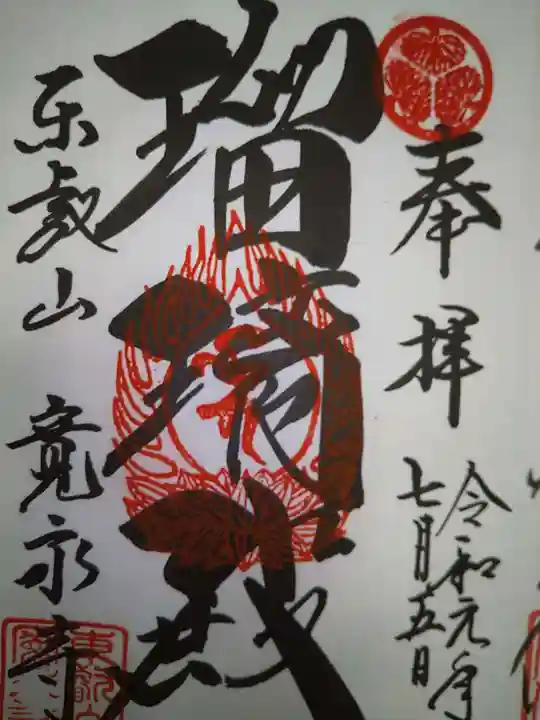 奉拝
令和元年
七月五日
瑠璃殿
東叡山 寛永寺